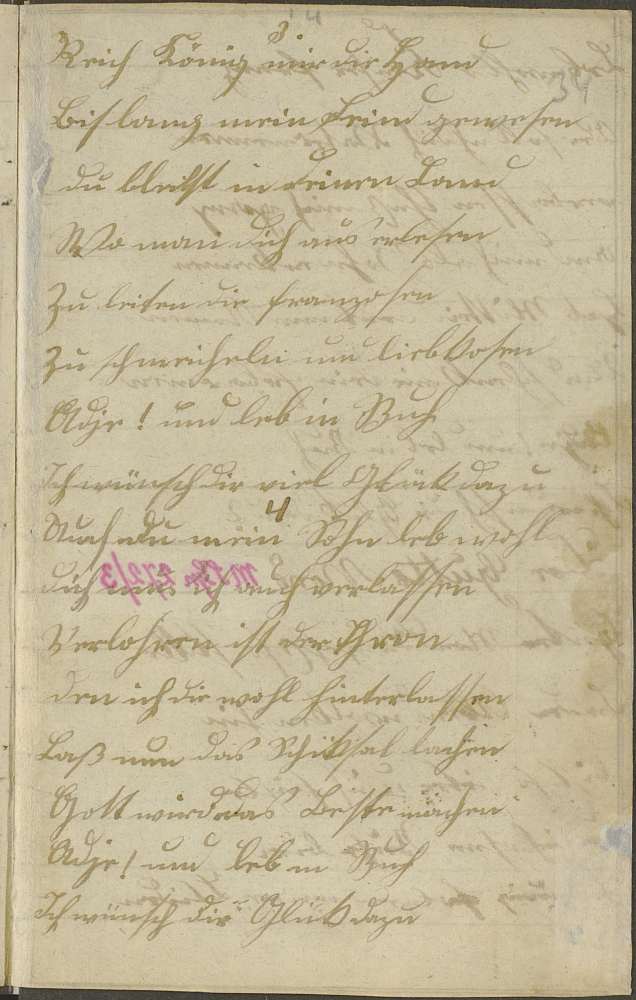 3.
Reich König mir die Hand
Bislang mein Feind gewesen
du bleibst in deinen Land
Wo man dich aus erlesen
Zu leiten die franzosen
Zu schmeicheln und liebkosen
Adje! und leb in Ruh
Ich wünsch dir viel Glük dazu
4
Auch du mein Sohn leb wohl
dich mus ich auch verlassen
Verlohren ist der Thron
den ich dir wohl hinterlassen
Laß nun das Schiksal lachen
Gott wird das Beste machen
Adje! und leb in Ruh
Ich wünsch dir Glük dazu